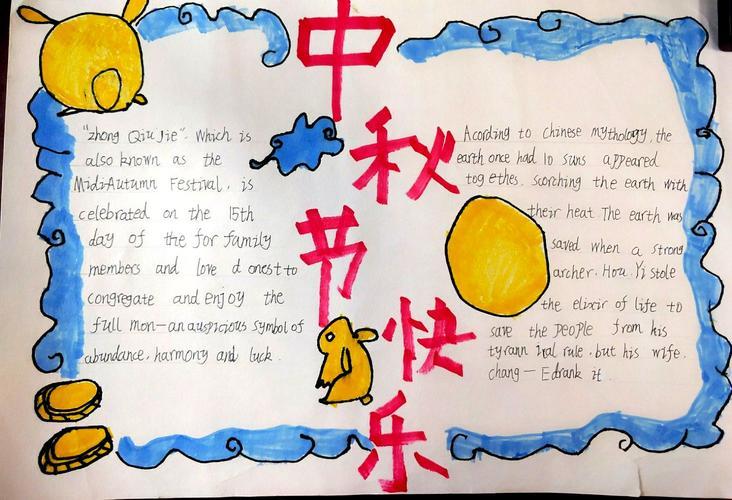 中秋节快乐
"zhong Qiu Jie". Which is
also known as the
Midi-Autumn Festival, is
celebrated on the 15th
day of the for family
members and love d onest to
congregate and enjoy the
full mon—an auspicious symbol of
abundance, harmony and luck.
Acording to chinese mythology, the
earth once had 10 suns appeared
togethes, scorching the earth with
their heat. The earth was
saved when a strong
archer. Hou. Yi stole
the elixir of life to
save the people from his
tyrann ical rule, but his wife.
chang — E drank it.